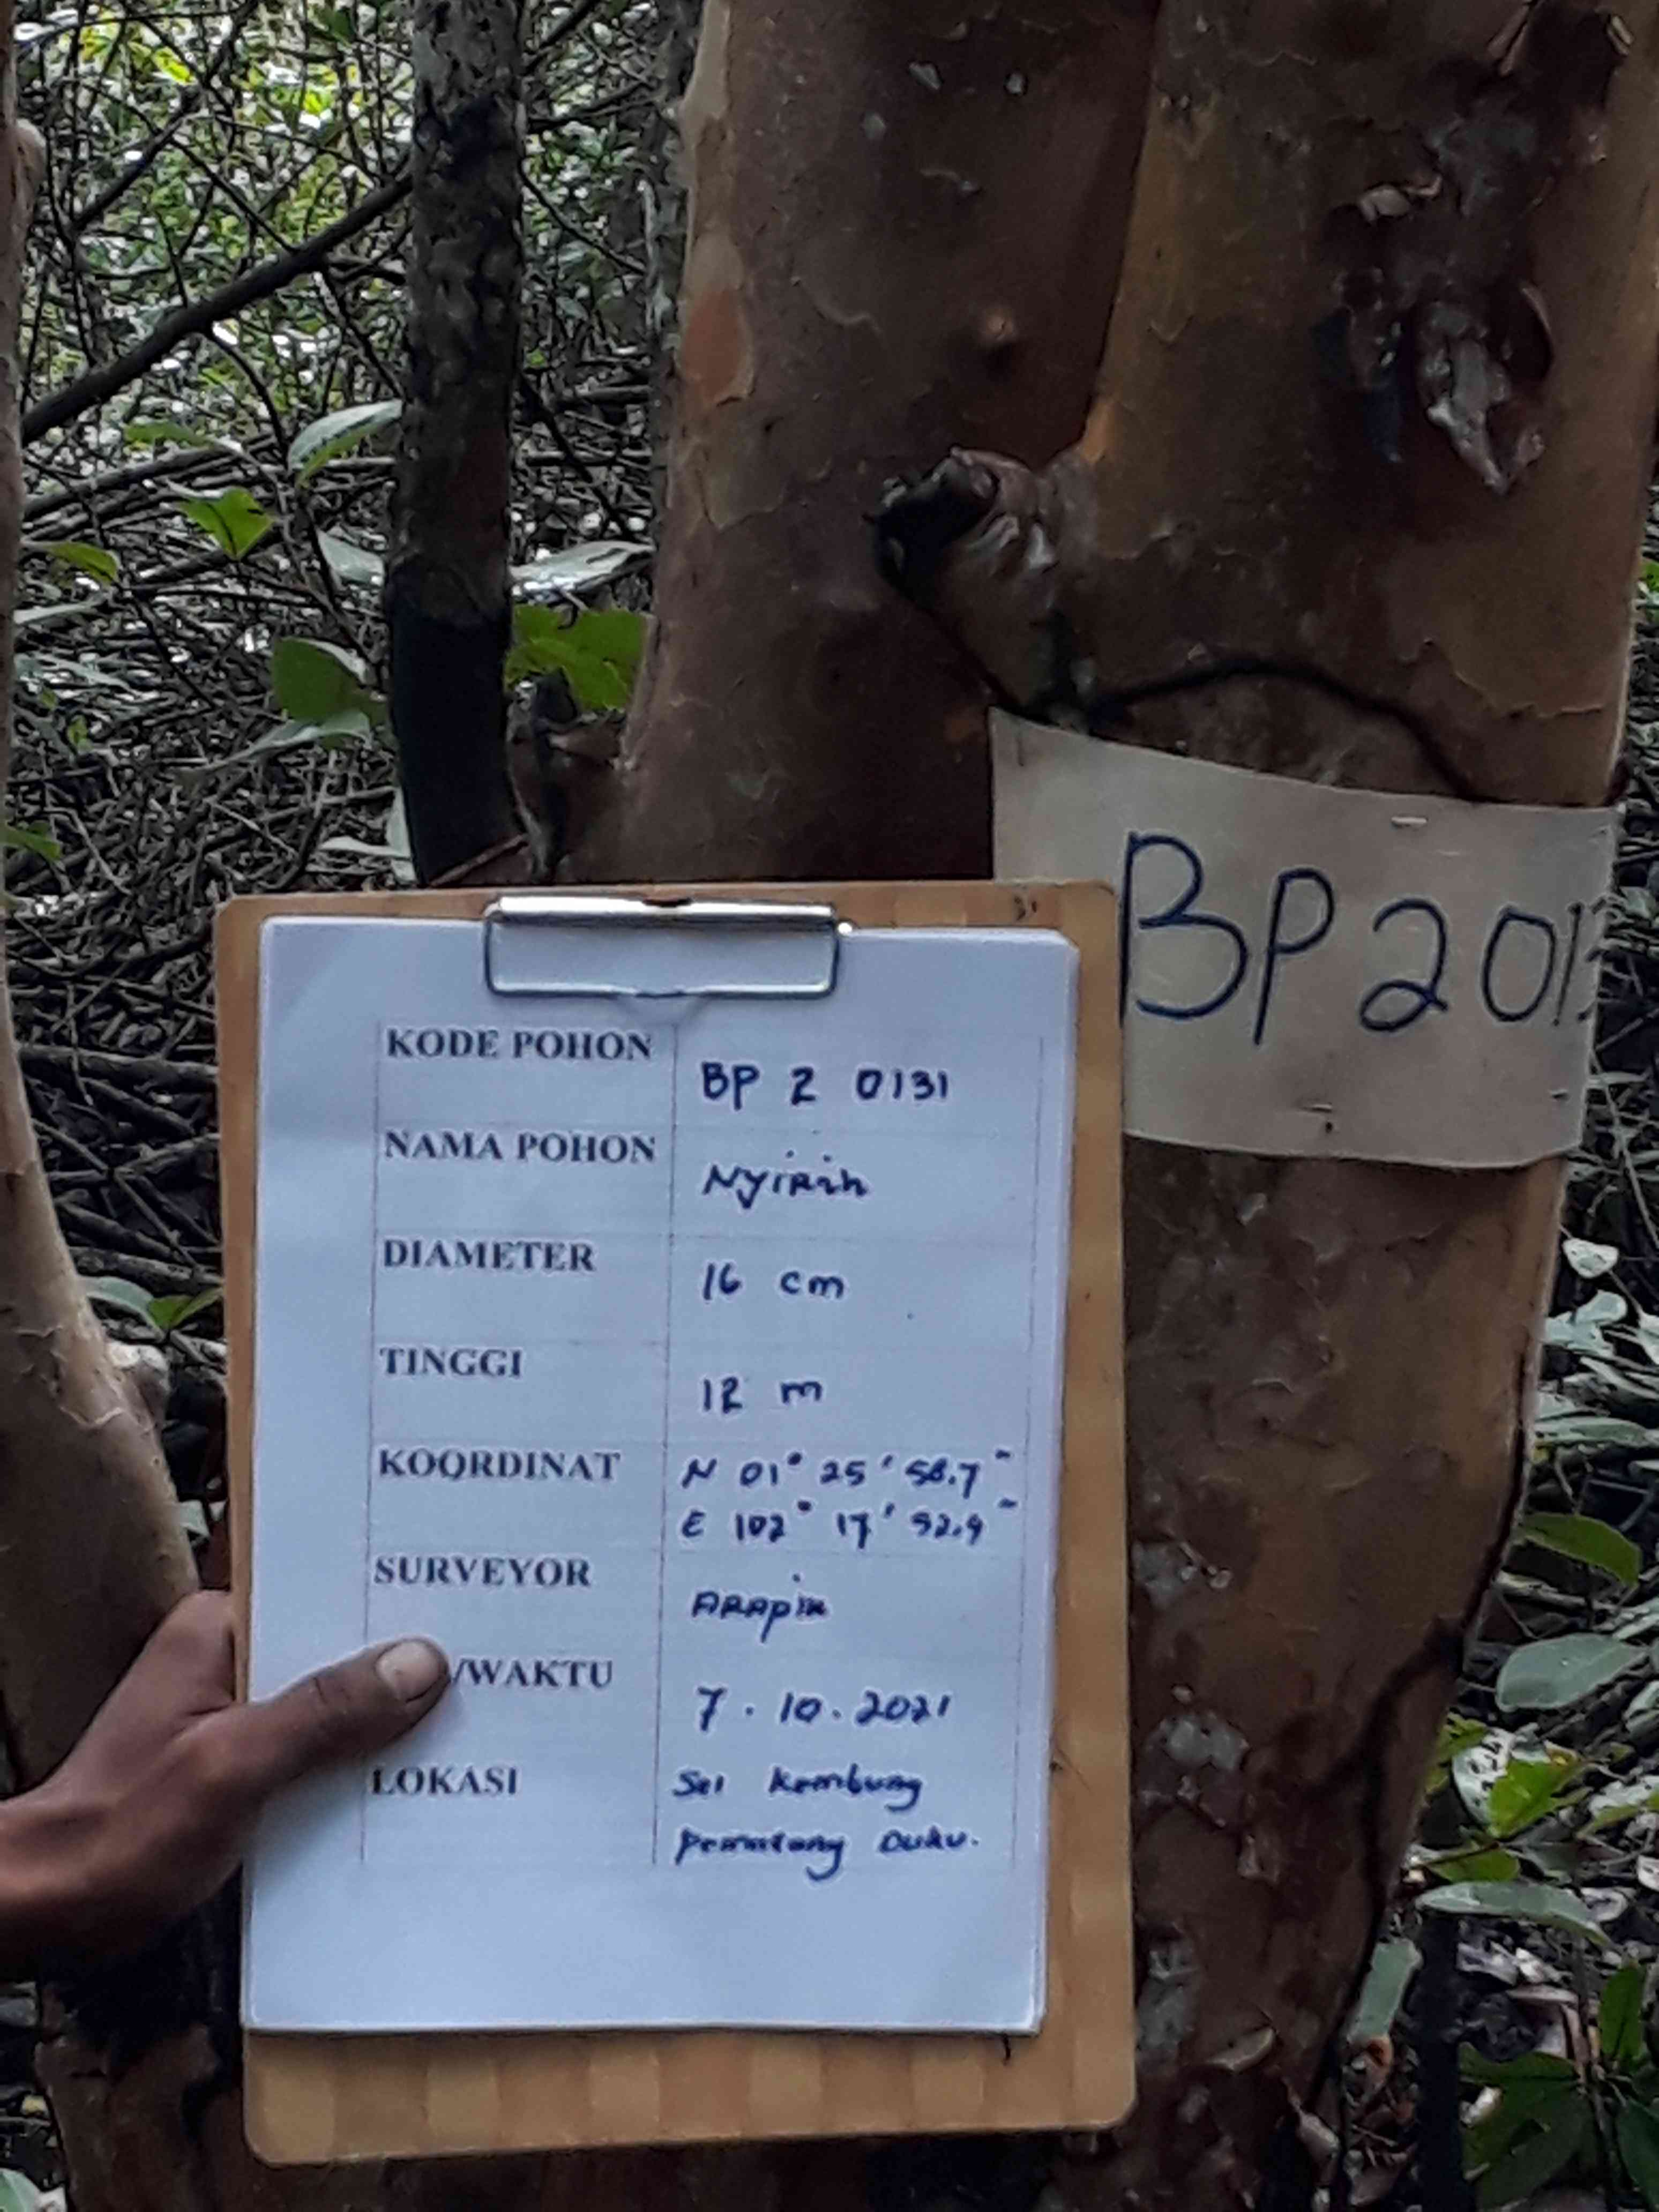 BP 201
KODE POHON
BP 2 0131
NAMA POHON
Nyirih
DIAMETER
16 cm
TINGGI
12 m
KOORDINAT
N 01° 25' 58.7"
E 102° 17' 52.9"
SURVEYOR
ARApin
/WAKTU
7.10.2021
LOKASI
Sei Kembung
Pematang Duku.